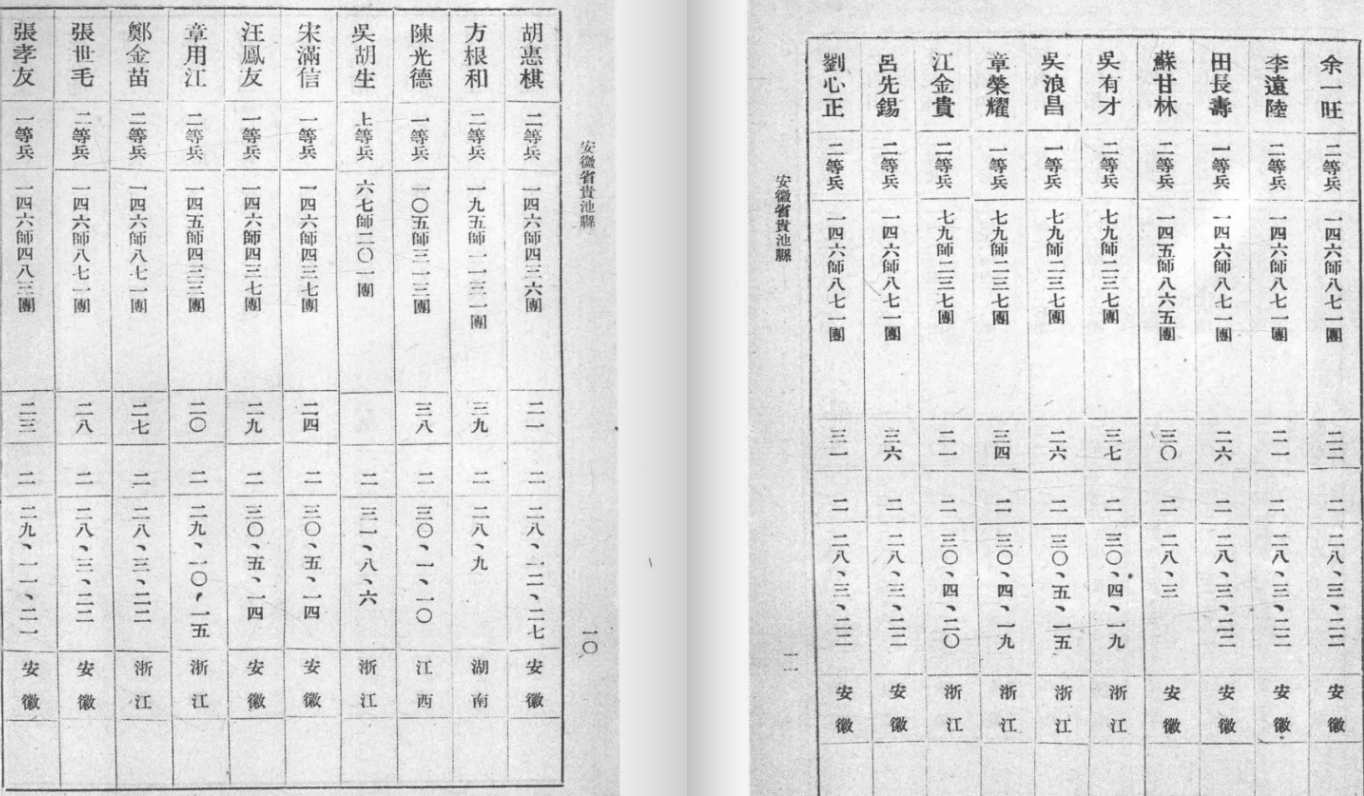 安徽省貴池縣 一〇
胡惠棋 二等兵 一四六師四三六團 二一 二 二八、一二、二七 安徽
方根和 二等兵 一九五師一一三一團 三九 二 二八、九 湖南
陳光德 一等兵 一〇五師三一三團 三八 二 三〇、一、一〇 江西
吳胡生 上等兵 六七師二〇一團 二 三一、八、六 浙江
宋滿信 一等兵 一四六師四三七團 二四 二 三〇、五、一四 安徽
汪鳳友 一等兵 一四六師四三七團 二九 二 三〇、五、一四 安徽
章用江 二等兵 一四五師四三三團 二〇 二 二九、一〇、一五 浙江
鄭金苗 二等兵 一四六師八七一團 二七 二 二八、三、二二 浙江
張世毛 二等兵 一四六師八七一團 二八 二 二八、三、二二 安徽
張孝友 一等兵 一四六師四八三團 二三 二 二九、一一、二一 安徽
余一旺 二等兵 一四六師八七一團 二二 二 二八、三、二二 安徽
李遠陸 二等兵 一四六師八七一團 二一 二 二八、三、二二 安徽
田長壽 一等兵 一四六師八七一團 二六 二 二八、三、二二 安徽
蘇甘林 二等兵 一四五師八六五團 三〇 二 二八、三 安徽
吳有才 二等兵 七九師二三七團 三七 二 三〇、四、一九 浙江
吳浪昌 一等兵 七九師二三七團 二六 二 三〇、五、一五 浙江
章榮耀 一等兵 七九師二三七團 三四 二 三〇、四、一九 浙江
江金貴 二等兵 七九師二三七團 二一 二 三〇、四、二〇 浙江
呂先錫 二等兵 一四六師八七一團 三六 二 二八、三、二二 安徽
劉心正 二等兵 一四六師八七一團 三一 二 二八、三、二二 安徽
安徽省貴池縣 一一